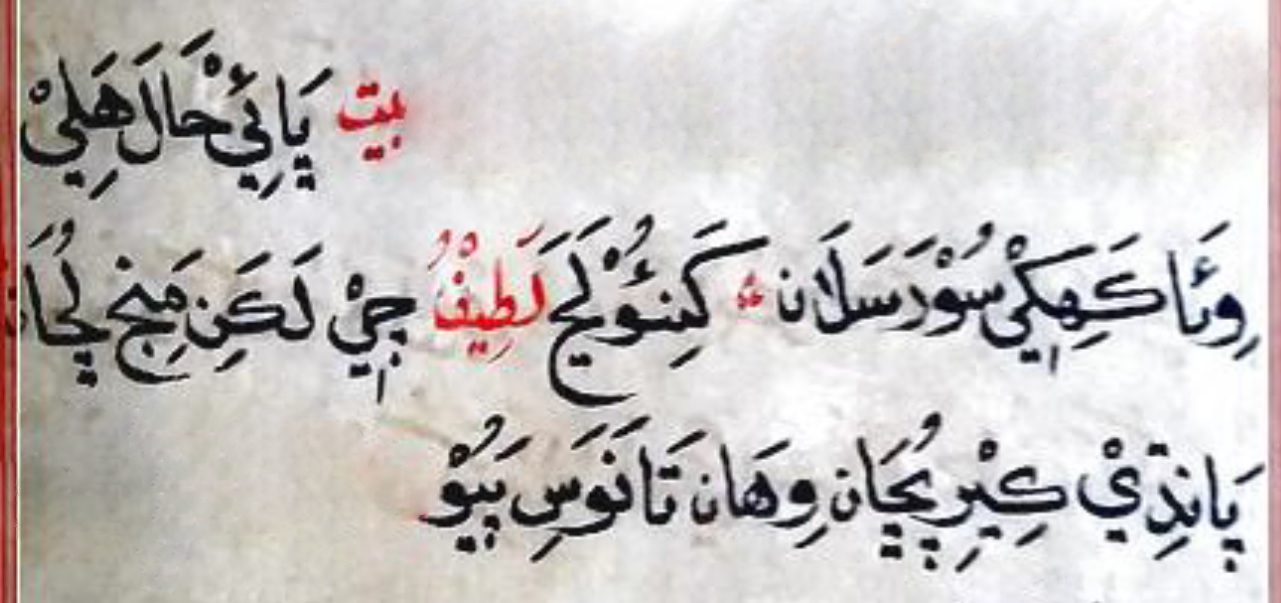 بيت پَائِيْ حَالَ هَلِيْ
وِئَا کَهِکِيْ سُوْرَ سَلَان * کَنِئُوْ لَحَ لَطِيْفُ چِيْ لَکَنِ مَنِجِ لُڃَان
پَانڌِيْ کِيْرِ پُڇَان وِهَان تَا نَوَسِ پَيُوْ